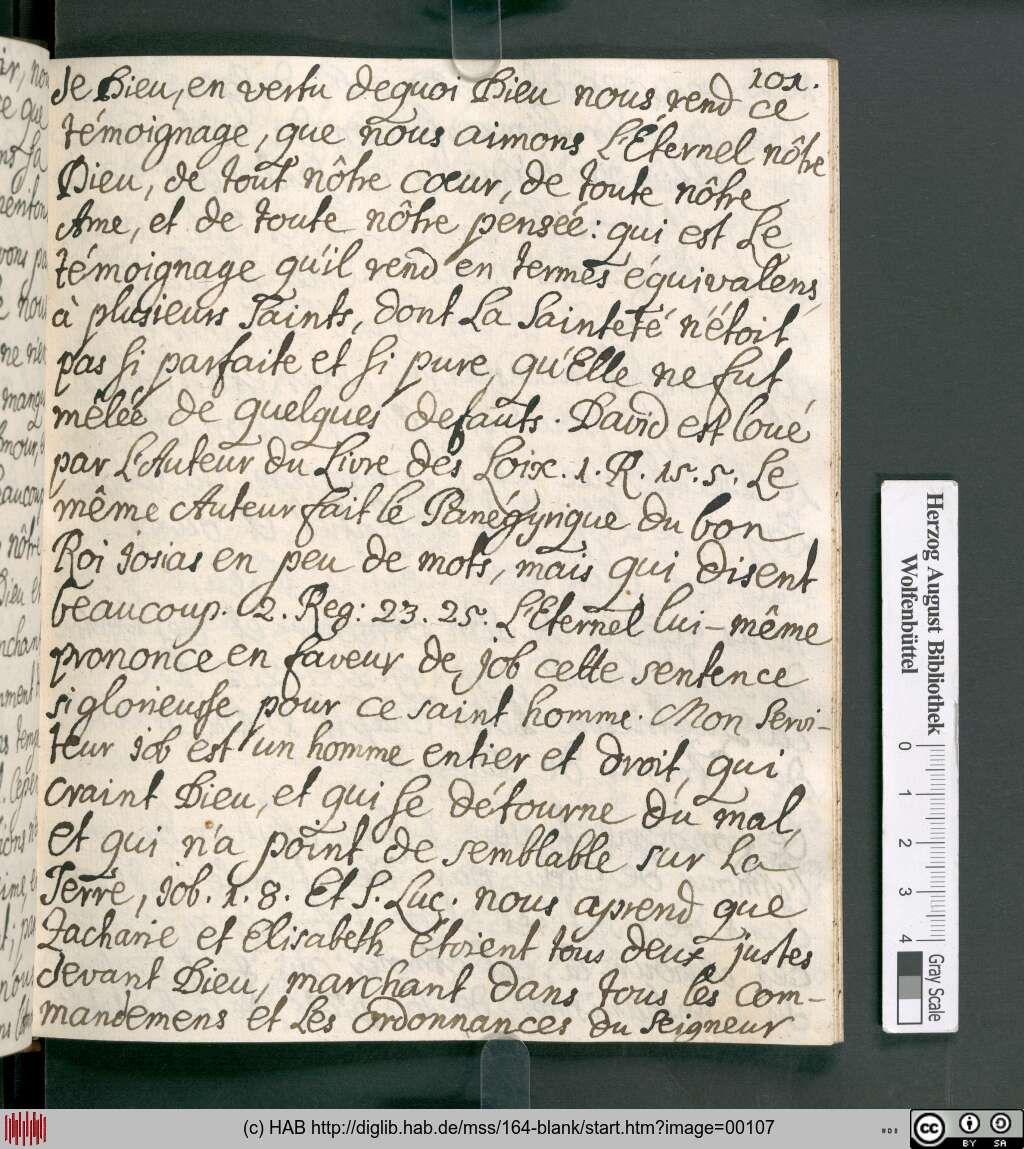 101.
de Dieu, en vertu dequoi Dieu nous rend ce
témoignage, que nous aimons L'Éternel nôtre
Dieu, de tout nôtre cœur, de toute nôtre
Ame, et de toute nôtre penseé: qui est Le
témoignage qu'il rend en termes équivalens
à plusieurs Saints, dont La Sainteté n'étoit
pas si parfaite et si pure, qu'Elle ne fut
mêleé de quelques defauts. David est loué
par L'Auteur du Livre des Loix. 1. R. 15. 5. Le
même Auteur fait le Panégyrique du bon
Roi Josias en peu de mots, mais qui disent
beaucoup. 2. Reg: 23. 25. L'Eternel lui-même
prononce en faveur de Job cette sentence
si glorieusse pour ce saint homme. Mon Servi-
teur Job est un homme entier et droit, qui
craint Dieu, et qui se détourne du mal,
et qui n'a point de semblable sur La
Terre, Job. 1. 8. Et S. Luc. nous aprend que
Zacharie et Elisabeth étoient tous deux justes
devant Dieu, marchant dans tous les com-
mandemens et Les Ordonnances du Seigneur
Herzog August Bibliothek
Wolfenbüttel
0 1 2 3 4
Gray Scale
(c) HAB http://diglib.hab.de/mss/164-blank/start.htm?image=00107
cc BY SA